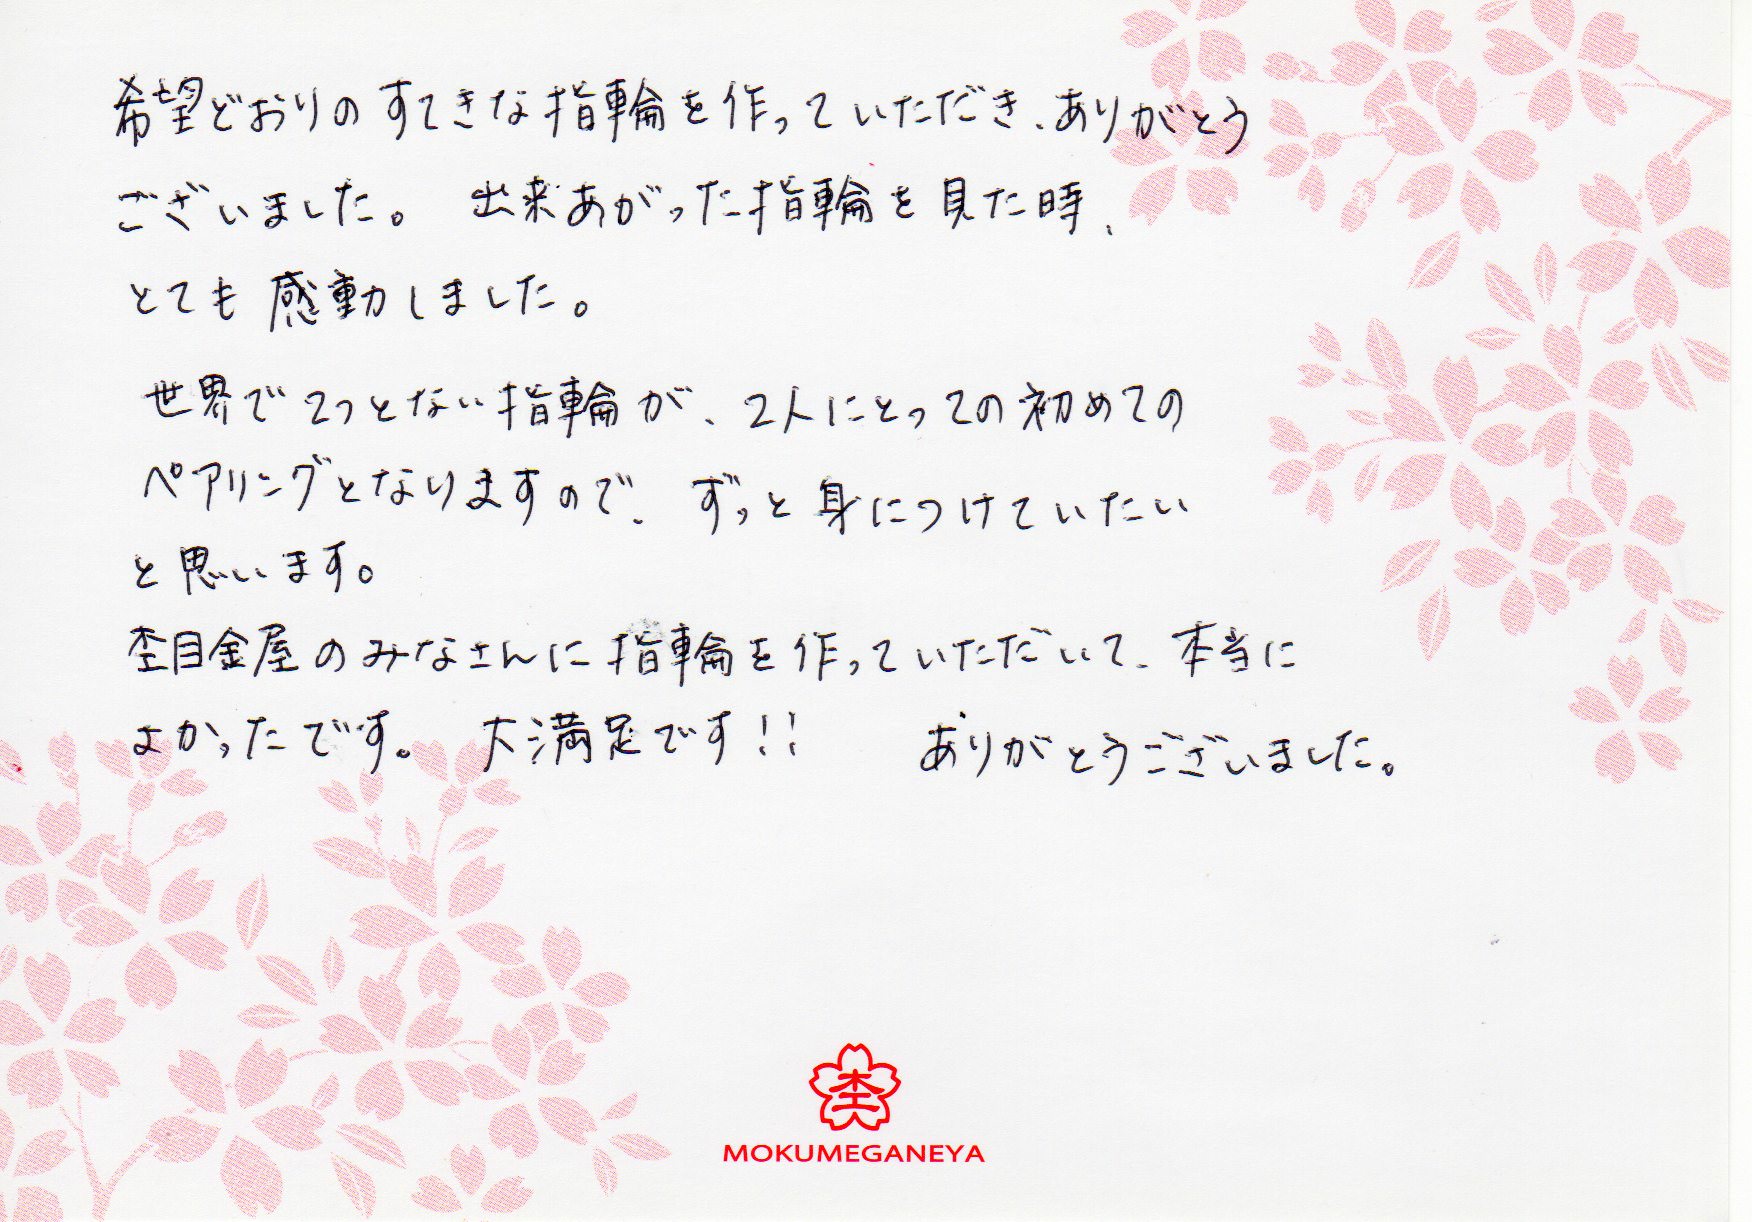 希望どおりのすてきな指輪を作っていただき、ありがとう
ございました。 出来あがった指輪を見た時、
とても感動しました。
世界で2つとない指輪が、2人にとっての初めての
ペアリングとなりますので、ずっと身につけていたい
と思います。
杢目金屋のみなさんに指輪を作っていただいて、本当に
よかったです。 大満足です!! ありがとうございました。
杢
MOKUMEGANEYA